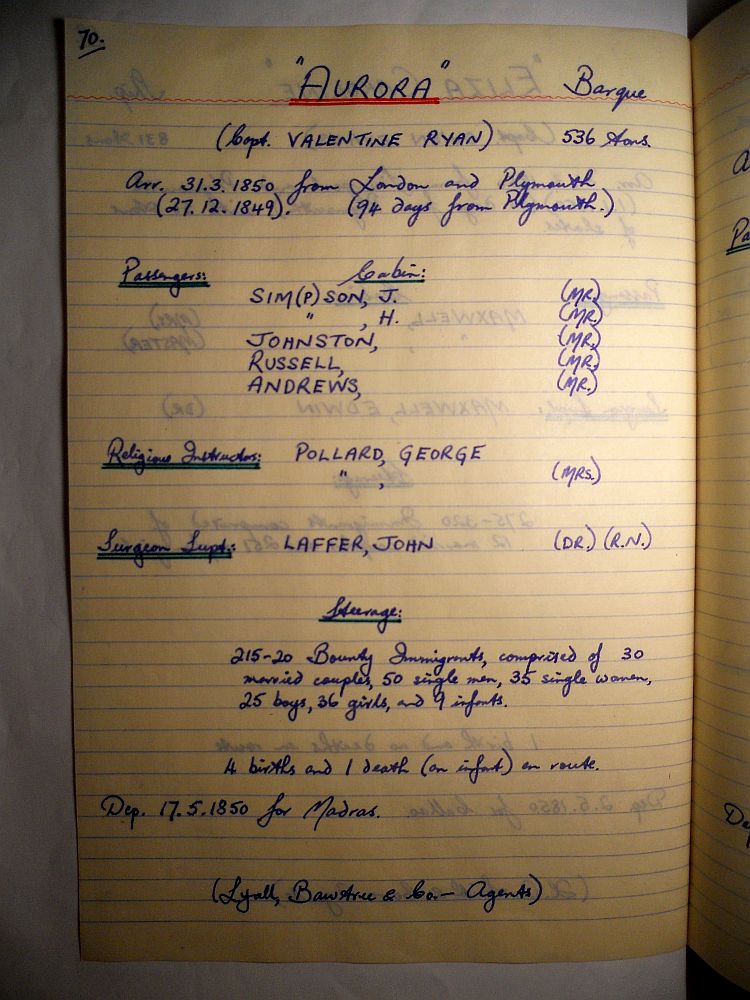 70.
"AURORA" Barque
(Capt. VALENTINE RYAN) 536 tons.
Arr. 31.3.1850 from London and Plymouth
(27.12.1849). (94 days from Plymouth.)
Passengers: Cabin:
SIM(P)SON, J. (MR.)
" , H. (MR.)
JOHNSTON, (MR.)
RUSSELL, (MR.)
ANDREWS, (MR.)
Religious Instructor: POLLARD, GEORGE
" , (MRS.)
Surgeon Supt.: LAFFER, JOHN (DR.) (R.N.)
Steerage:
215-20 Bounty Immigrants, comprised of 30
married couples, 50 single men, 35 single women,
25 boys, 36 girls, and 9 infants.
4 births and 1 death (an infant) en route.
Dep. 17.5.1850 for Madras.
(Lyall, Bawtree & Co. - Agents)